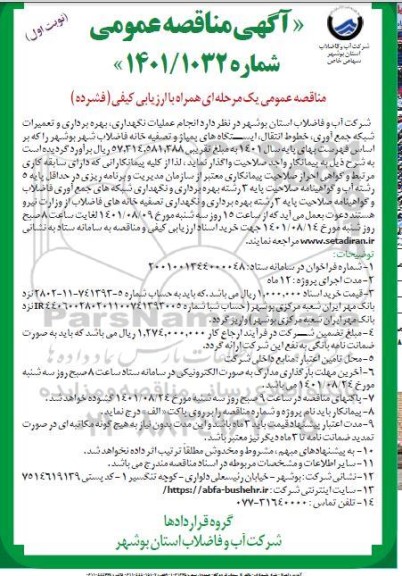 (نوبت اول)
« آگهی مناقصه عمومی
شماره ۱۴۰۱/۱۰۳۲ »
شرکت آب و فاضلاب
استان بوشهر
سهامی خاص
مناقصه عمومی یک مرحله‌ای همراه با ارزیابی کیفی (فشرده)
شرکت آب و فاضلاب استان بوشهر در نظر دارد انجام عملیات نگهداری، بهره برداری و تعمیرات
شبکه جمع آوری، خطوط انتقال، ایستگاه های پمپاژ و تصفیه خانه فاضلاب شهر بوشهر را که بر
اساس فهرست بهای پایه سال ۱۴۰۱ به مبلغ تقریبی ۵۷,۳۱۴,۵۸۱,۳۸۸ ریال برآورد گردیده است
به شرح ذیل به پیمانکار واجد صلاحیت واگذار نماید، لذا از کلیه پیمانکارانی که دارای سابقه کاری
مرتبط و گواهی احراز صلاحیت پیمانکاری معتبر از سازمان مدیریت و برنامه ریزی در حداقل پایه ۵
رشته آب و گواهینامه صلاحیت پایه ۳ رشته بهره برداری و نگهداری شبکه های جمع آوری فاضلاب
و گواهینامه صلاحیت پایه ۳ رشته بهره برداری و نگهداری تصفیه خانه های فاضلاب از وزارت نیرو
هستند دعوت بعمل می آید که از ساعت ۱۵ روز سه شنبه مورخ ۱۴۰۱/۰۸/۰۹ لغایت ساعت ۸ صبح
روز شنبه مورخ ۱۴۰۱/۰۸/۱۴ جهت خرید اسناد ارزیابی کیفی و مناقصه به سامانه ستاد به نشانی
www.setadiran.ir مراجعه نمایند.
توضیحات:
۱- شماره فراخوان در سامانه ستاد: ۲۰۰۱۰۰۱۳۴۴۰۰۰۰۴۸
۲- مدت اجرای پروژه: ۱۲ ماه
۳- قیمت خرید اسناد ۱,۰۰۰,۰۰۰ ریال می باشد، که باید به حساب شماره ۵-۷۴۱۳۹۳-۱۱-۲۸۰۲ نزد
بانک مهر ایران شعبه مرکزی بوشهر (حساب شبا شماره
بانک مهر ایران شعبه مرکزی بوشهر) واریز گردد.
۴- مبلغ تضمین شرکت در فرآیند ارجاع کار ۱,۲۷۴,۰۰۰,۰۰۰ ریال می باشد که باید به صورت
ضمانت نامه بانکی به نفع این شرکت ارائه گردد.
۵- محل تامین اعتبار: منابع داخلی شرکت
۶- آخرین مهلت بارگذاری مدارک به صورت الکترونیکی در سامانه ستاد ساعت ۸ صبح روز سه شنبه
مورخ ۱۴۰۱/۰۸/۲۴ می باشد.
۷- پاکتهای مناقصه در ساعت ۹ صبح روز سه شنبه مورخ ۱۴۰۱/۰۸/۲۴ گشوده خواهد شد.
۸- پیمانکار باید نام پروژه و شماره مناقصه را بر روی پاکت « الف » درج نماید.
۹- مدت اعتبار پیشنهاد قیمت باید ۳ ماه باشد و این مدت بدون نیاز به هیچ گونه مکاتبه ای در صورت
تمدید ضمانت نامه تا ۳ ماه دیگر نیز معتبر باشد.
۱۰- به پیشنهادهای مبهم، مشروط و مخدوش مطلقاً ترتیب اثر داده نخواهد شد.
۱۱- سایر اطلاعات و مشخصات مربوطه در اسناد مناقصه مندرج می باشد.
۱۲- نشانی شرکت: بوشهر - خیابان رئیسعلی دلواری - کوچه تنگسیر ۱- کد پستی ۷۵۱۴۶۱۹۱۳۹
۱۳- سایت اینترنتی شرکت: https://abfa-bushehr.ir/
۱۴- تلفن تماس: ۳۱۶۴۰۰۰۰-۰۷۷
گروه قراردادها
شرکت آب و فاضلاب استان بوشهر